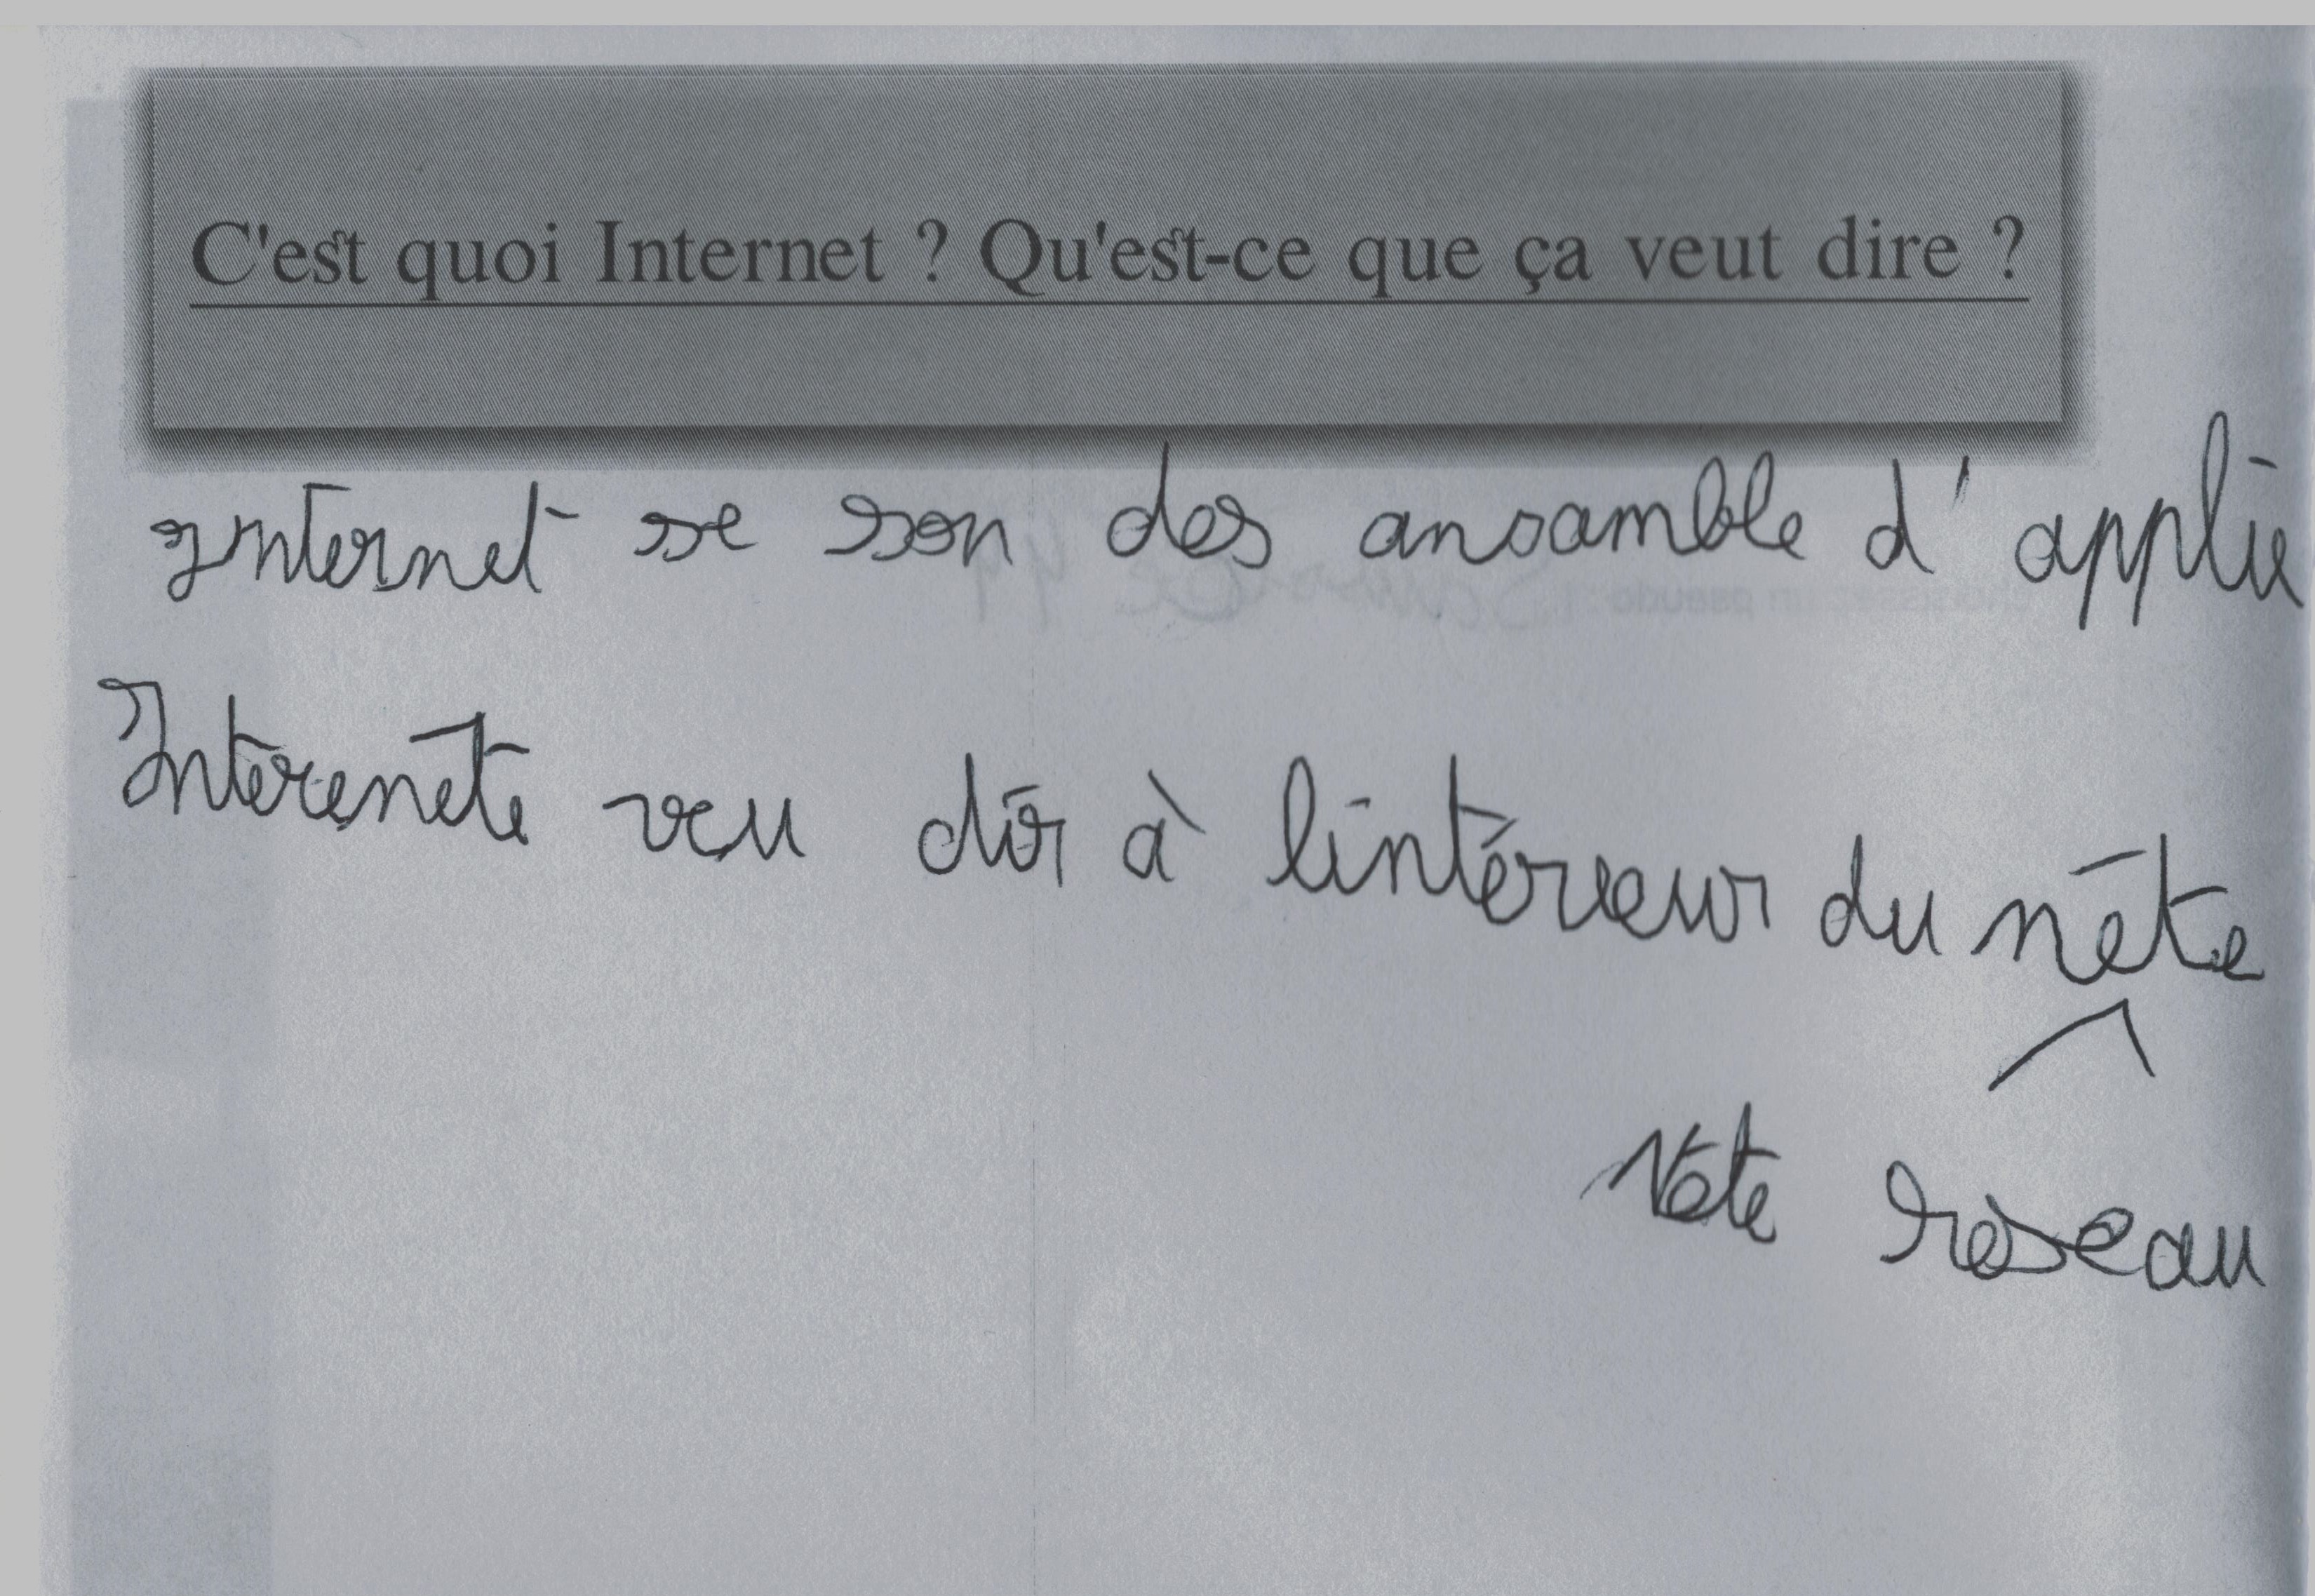 C'est quoi Internet ? Qu'est-ce que ça veut dire ?
Internet se son des ansamble d'applic
Interenéte veu dir à lintérieur du néte
Note réseau